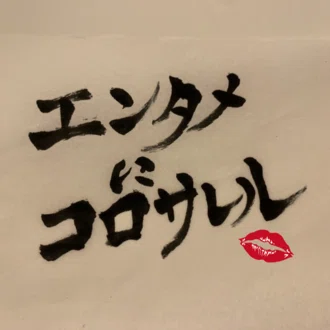 エンタメ
に
コロサレル